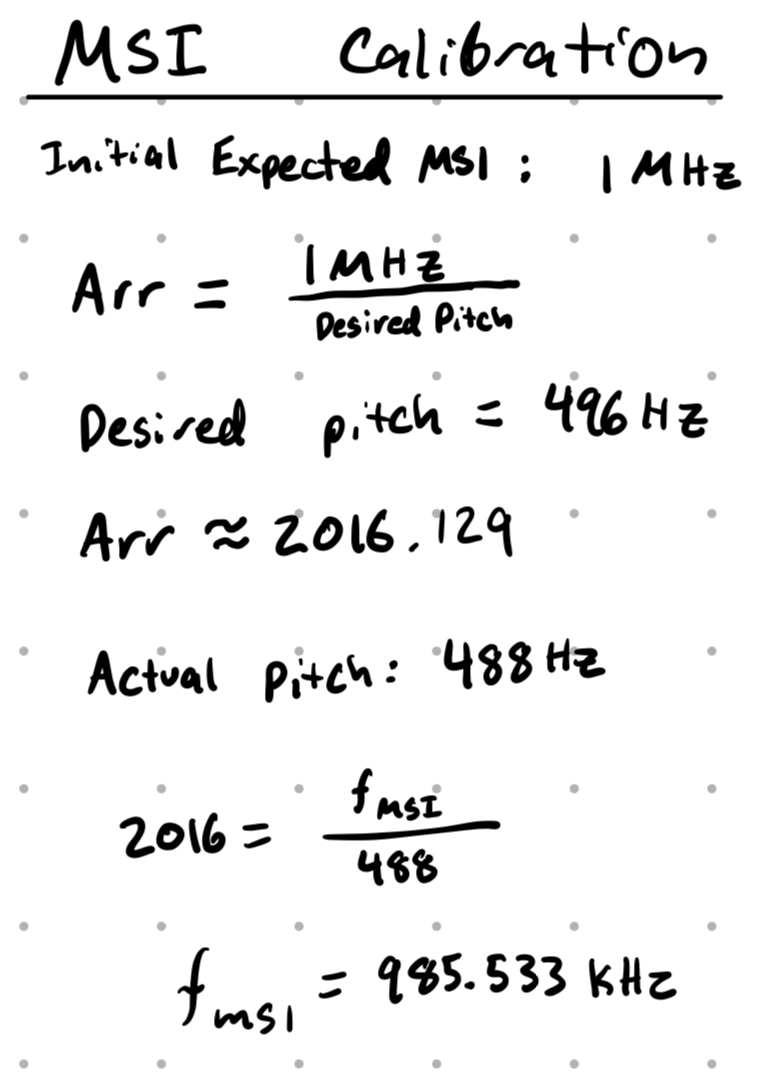 MSI Calibration
Initial Expected MSI: 1 MHz
Arr = 1MHz / Desired Pitch
Desired pitch = 496 Hz
Arr ≈ 2016.129
Actual pitch: 488 Hz
2016 = fMSI / 488
fmsi = 985.533 kHz